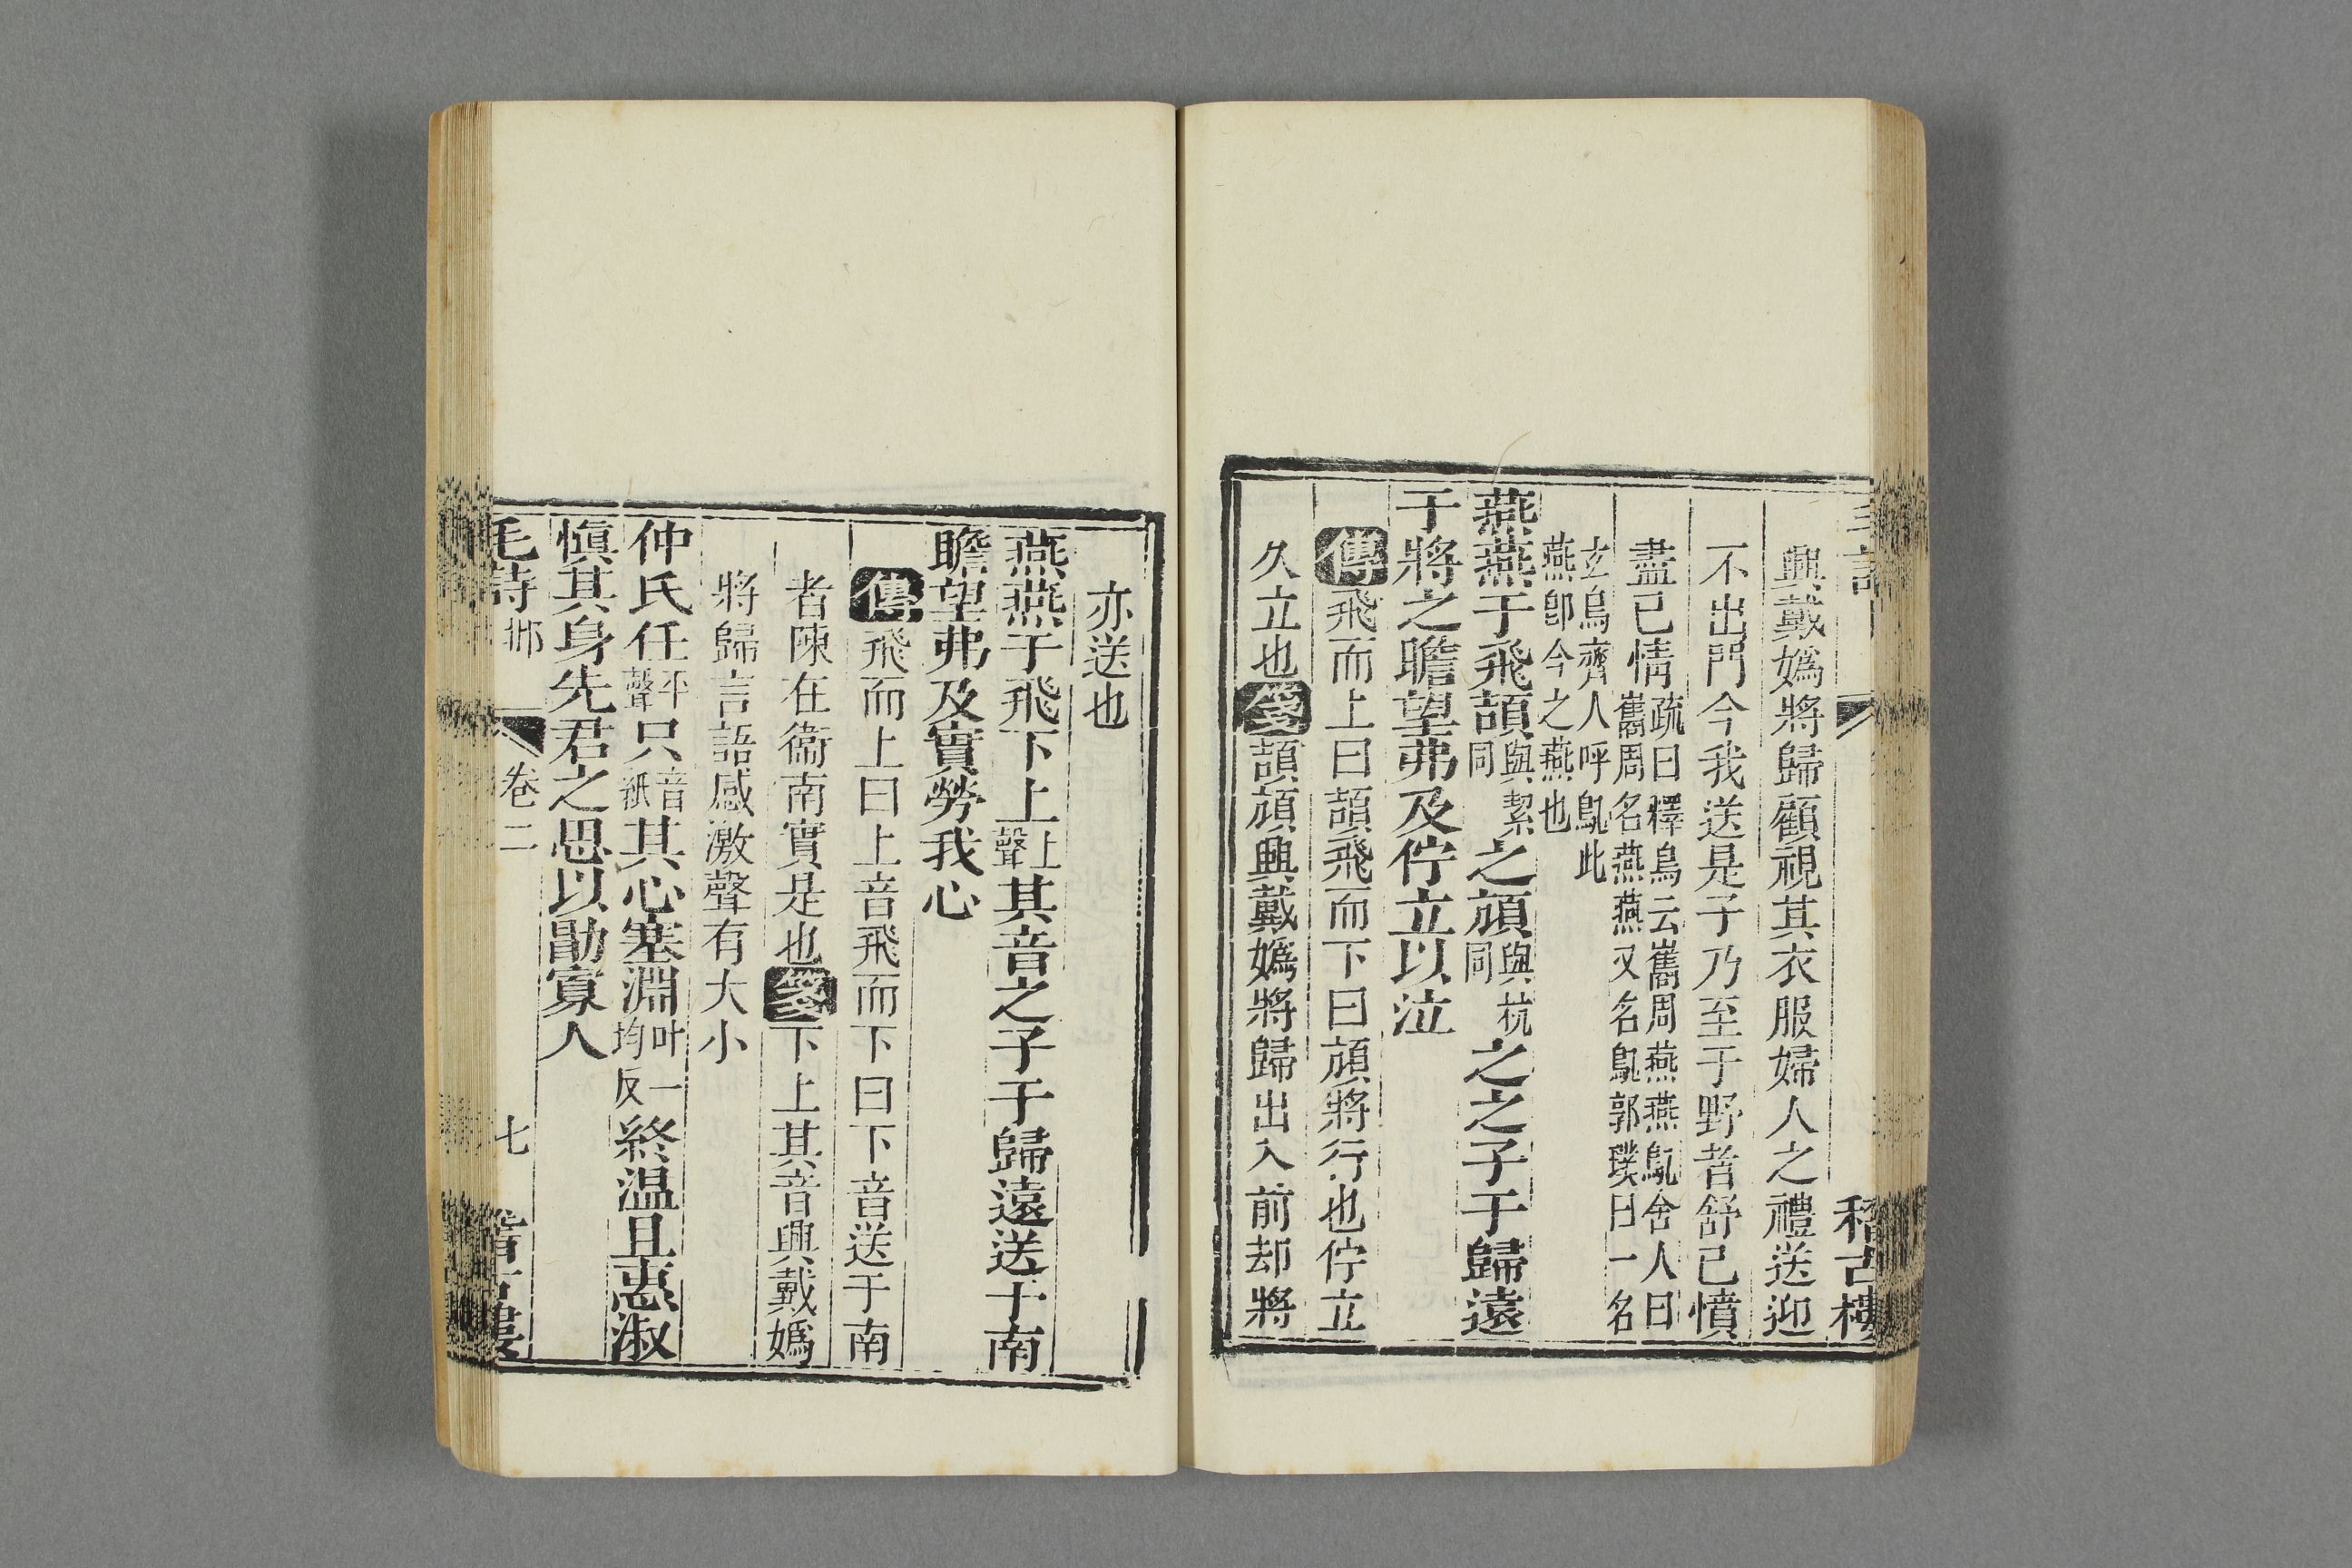 稽古樓
興戴嬀將歸顧視其衣服婦人之禮送迎
不出門今我送是子乃至于野者舒已憤
盡已情疏曰釋鳥云巂周燕燕鳦舍人曰
巂周名燕燕又名鳦郭璞曰一名
玄鳥齊人呼鳦此
燕卽今之燕也
燕燕于飛頡與絜同之頏與杭同之之子于歸遠
于將之瞻望弗及佇立以泣
傳飛而上曰頡飛而下曰頏將行也佇立
久立也箋頡頏興戴嬀將歸出入前却將
亦送也
燕燕于飛下上上聲其音之子于歸遠送于南
瞻望弗及實勞我心
傳飛而上曰上音飛而下曰下音送于南
者陳在衞南實是也箋下上其音興戴嬀
將歸言語感激聲有大小
仲氏任平聲只音紙其心塞淵叶一均反終温且惠淑
愼其身先君之思以勖寡人
毛詩 邶 卷二 七